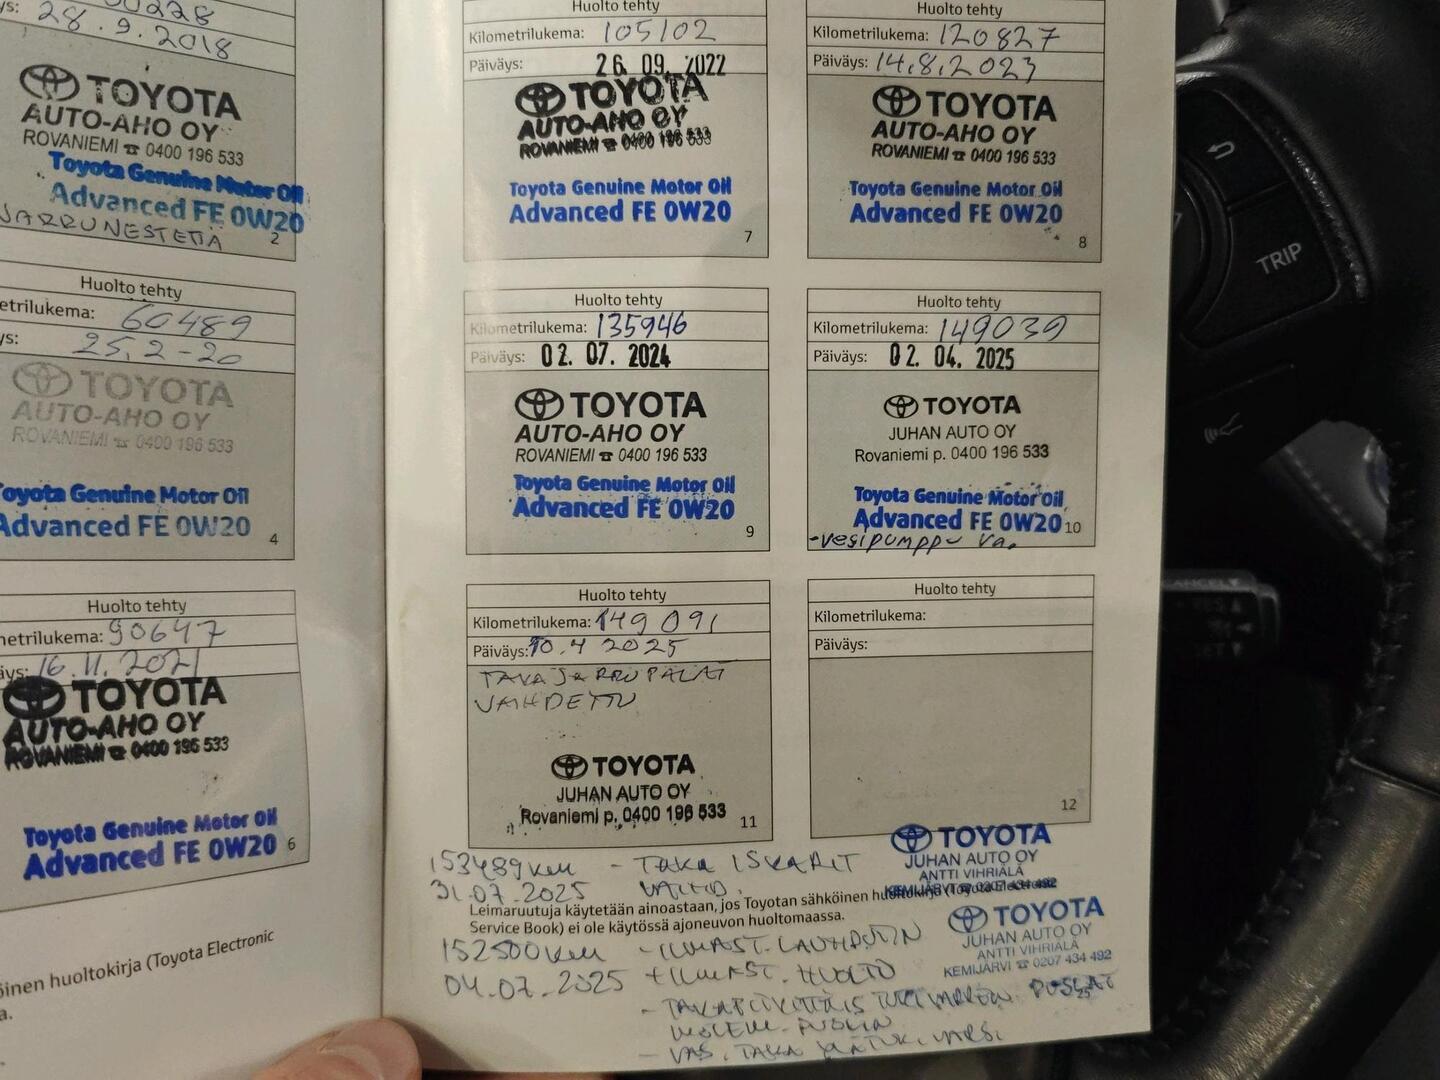 28.9.2018
TOYOTA
AUTO-AHO OY
ROVANIEMI ☎ 0400 196 533
Toyota Genuine Motor Oil
Advanced FE 0W20
JARRUNESTETTÄ
2
Huolto tehty
etrilukema: 60489
ys: 25.2-20
TOYOTA
AUTO-AHO OY
ROVANIEMI ☎ 0400 196 533
Toyota Genuine Motor Oil
Advanced FE 0W20
4
Huolto tehty
metrilukema: 90647
äys: 16.11.2021
TOYOTA
AUTO-AHO OY
ROVANIEMI ☎ 0400 196 533
Toyota Genuine Motor Oil
Advanced FE 0W20
6
öinen huoltokirja (Toyota Electronic
a.
Huolto tehty
Kilometrilukema: 105102
Päiväys: 26. 09. 2022
TOYOTA
AUTO-AHO OY
ROVANIEMI ☎ 0400 196 533
Toyota Genuine Motor Oil
Advanced FE 0W20
7
Huolto tehty
Kilometrilukema: 120827
Päiväys: 14.8.2023
TOYOTA
AUTO-AHO OY
ROVANIEMI ☎ 0400 196 533
Toyota Genuine Motor Oil
Advanced FE 0W20
8
Huolto tehty
Kilometrilukema: 135946
Päiväys: 02. 07. 2024
TOYOTA
AUTO-AHO OY
ROVANIEMI ☎ 0400 196 533
Toyota Genuine Motor Oil
Advanced FE 0W20
9
Huolto tehty
Kilometrilukema: 149039
Päiväys: 02. 04. 2025
TOYOTA
JUHAN AUTO OY
Rovaniemi p. 0400 196 533
Toyota Genuine Motor Oil
Advanced FE 0W20
10
-vesipumppu va.
Huolto tehty
Kilometrilukema: 149 091
Päiväys: 10.4 2025
TAKA JARRUPALAT
VAIHDETTU
TOYOTA
JUHAN AUTO OY
Rovaniemi p. 0400 196 533
11
Huolto tehty
Kilometrilukema:
Päiväys:
12
153489km - TAKA ISKARIT
31.07.2025 VAIHD.
TOYOTA
JUHAN AUTO OY
ANTTI VIHRIÄLÄ
KEMIJÄRVI ☎ 0207 434 492
Leimaruutuja käytetään ainoastaan, jos Toyotan sähköinen huoltokirja (Toyota Electronic
Service Book) ei ole käytössä ajoneuvon huoltomaassa.
152500km - ILMAST. LAUHDUTIN
04.07.2025 + ILMAST. HUOLTO
TOYOTA
JUHAN AUTO OY
ANTTI VIHRIÄLÄ
KEMIJÄRVI ☎ 0207 434 492
- TAKAPITKITTÄIS TUKIVARREN PUSLAT
25
- VAS. TAKA YLÄTUKIVARSI
TRIP
CANCEL
RES
SET